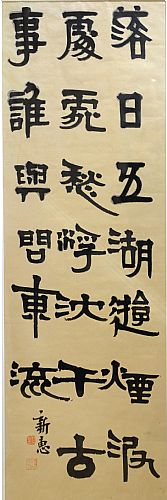 落日五湖遊煙波
處處愁浮沈千古
事誰與問東流
新惠